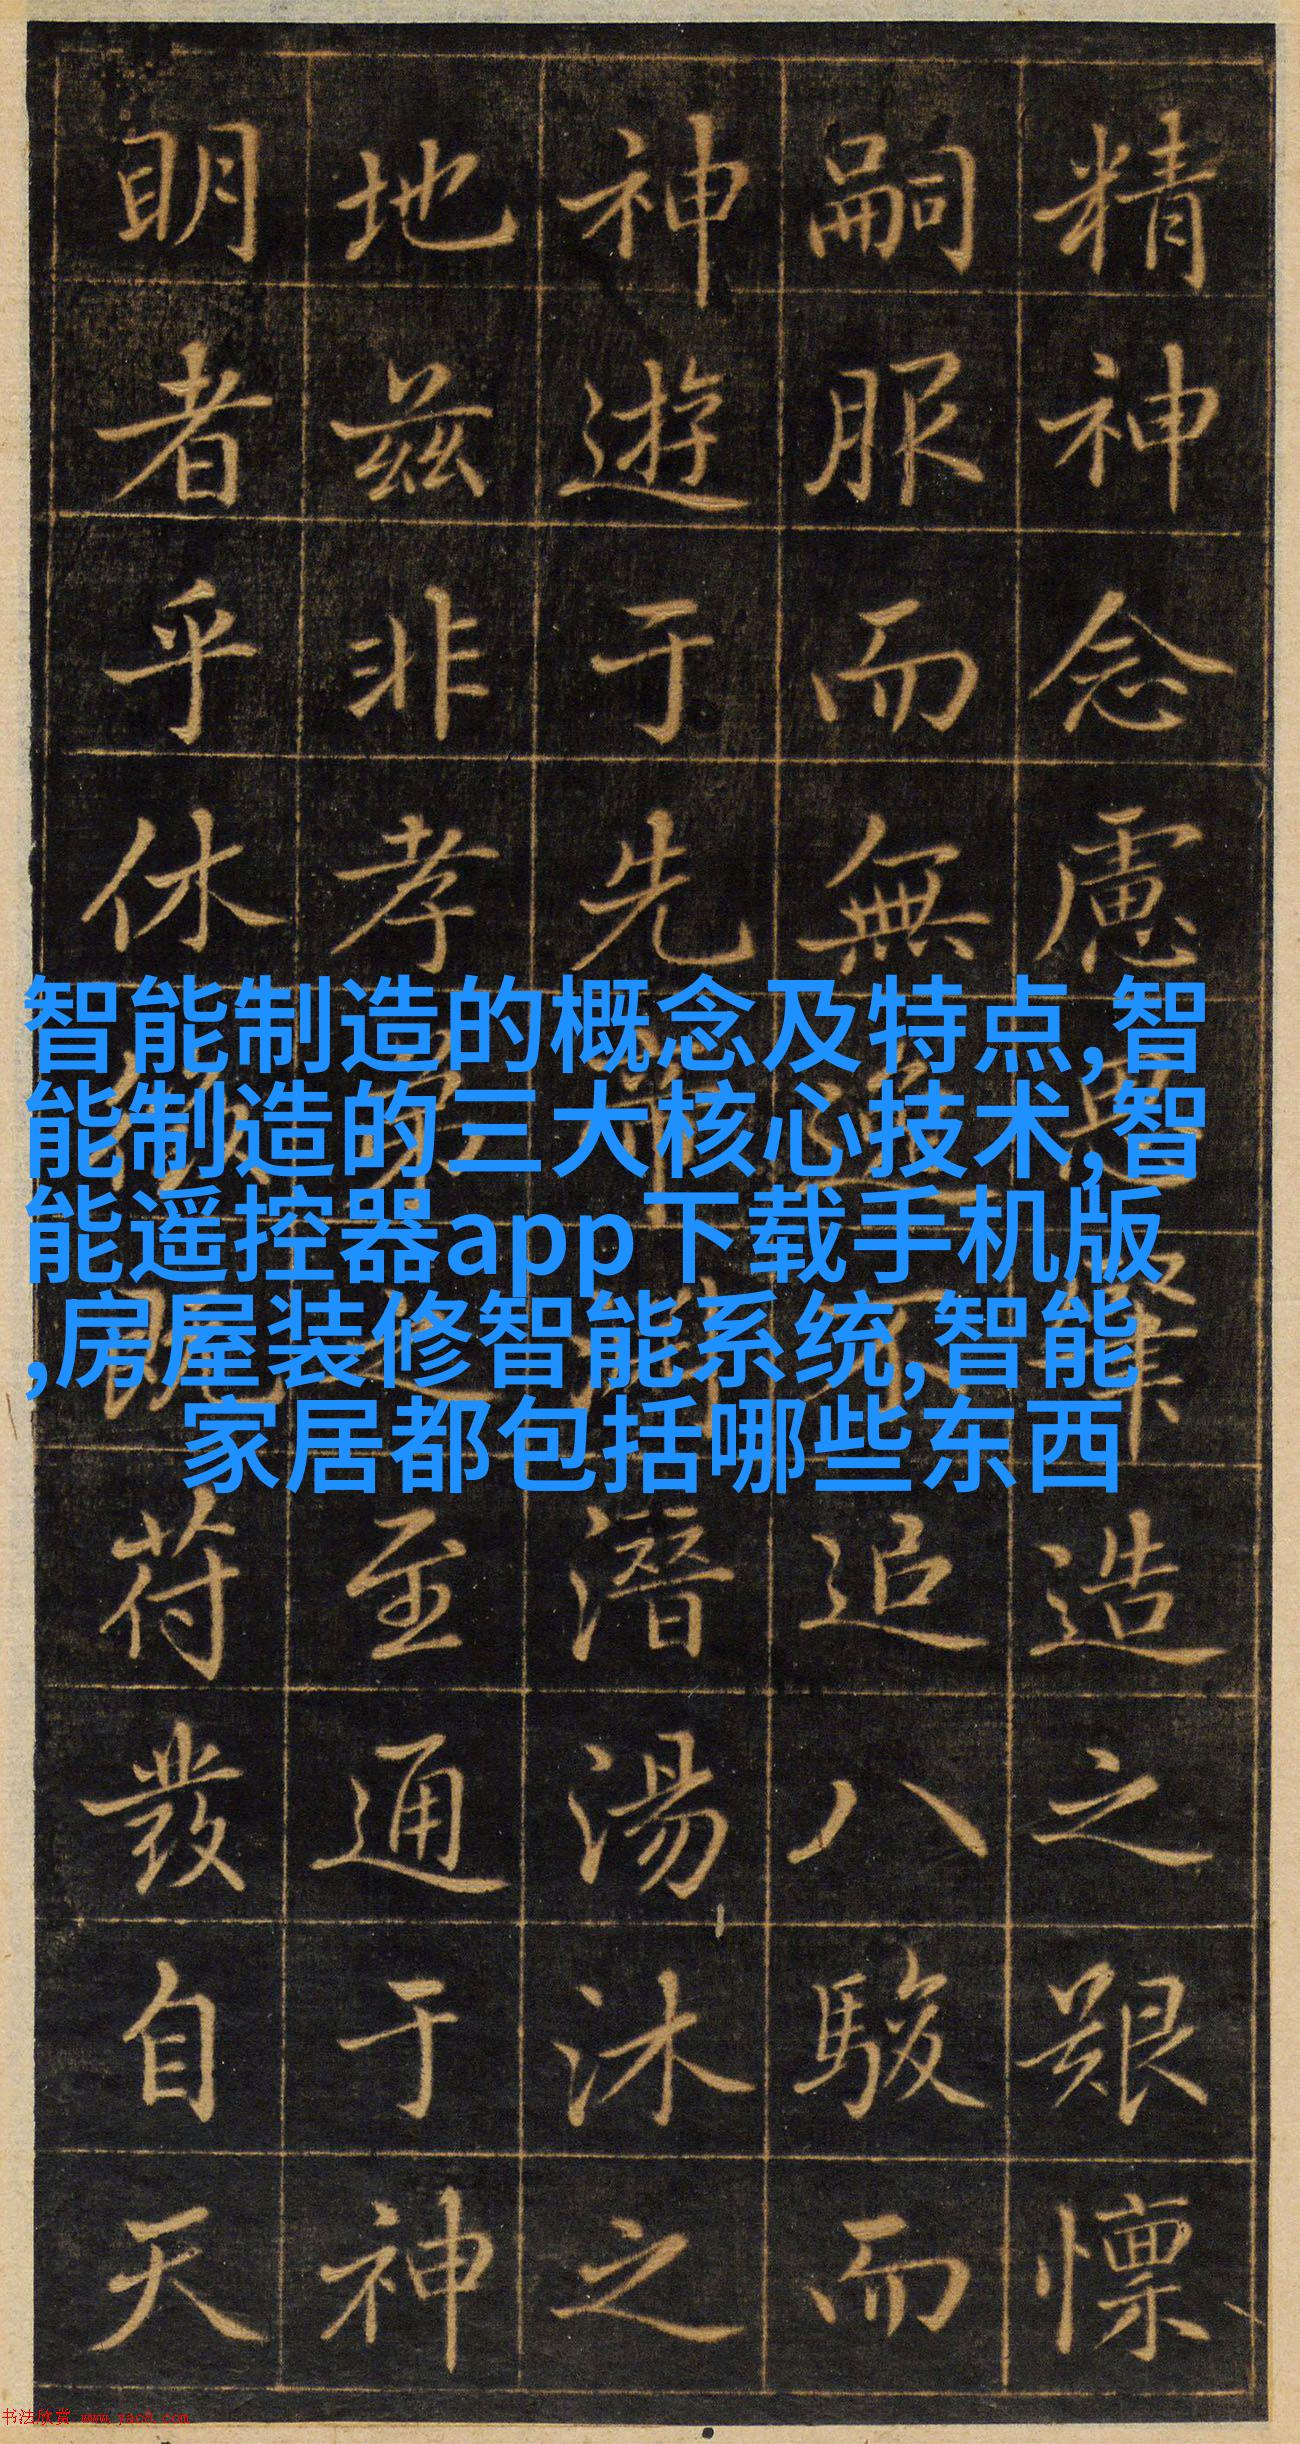 精神念慮造之艱懍
嗣服而無追八駿而
神遊于先潛湯沐之
地茲非孝至通于神
明者乎休符發自天
智能制造的概念及特点,智
能制造的三大核心技术,智
能遥控器app下载手机版
,房屋装修智能系统,智能
家居都包括哪些东西
书法欣赏 www.yac8.com